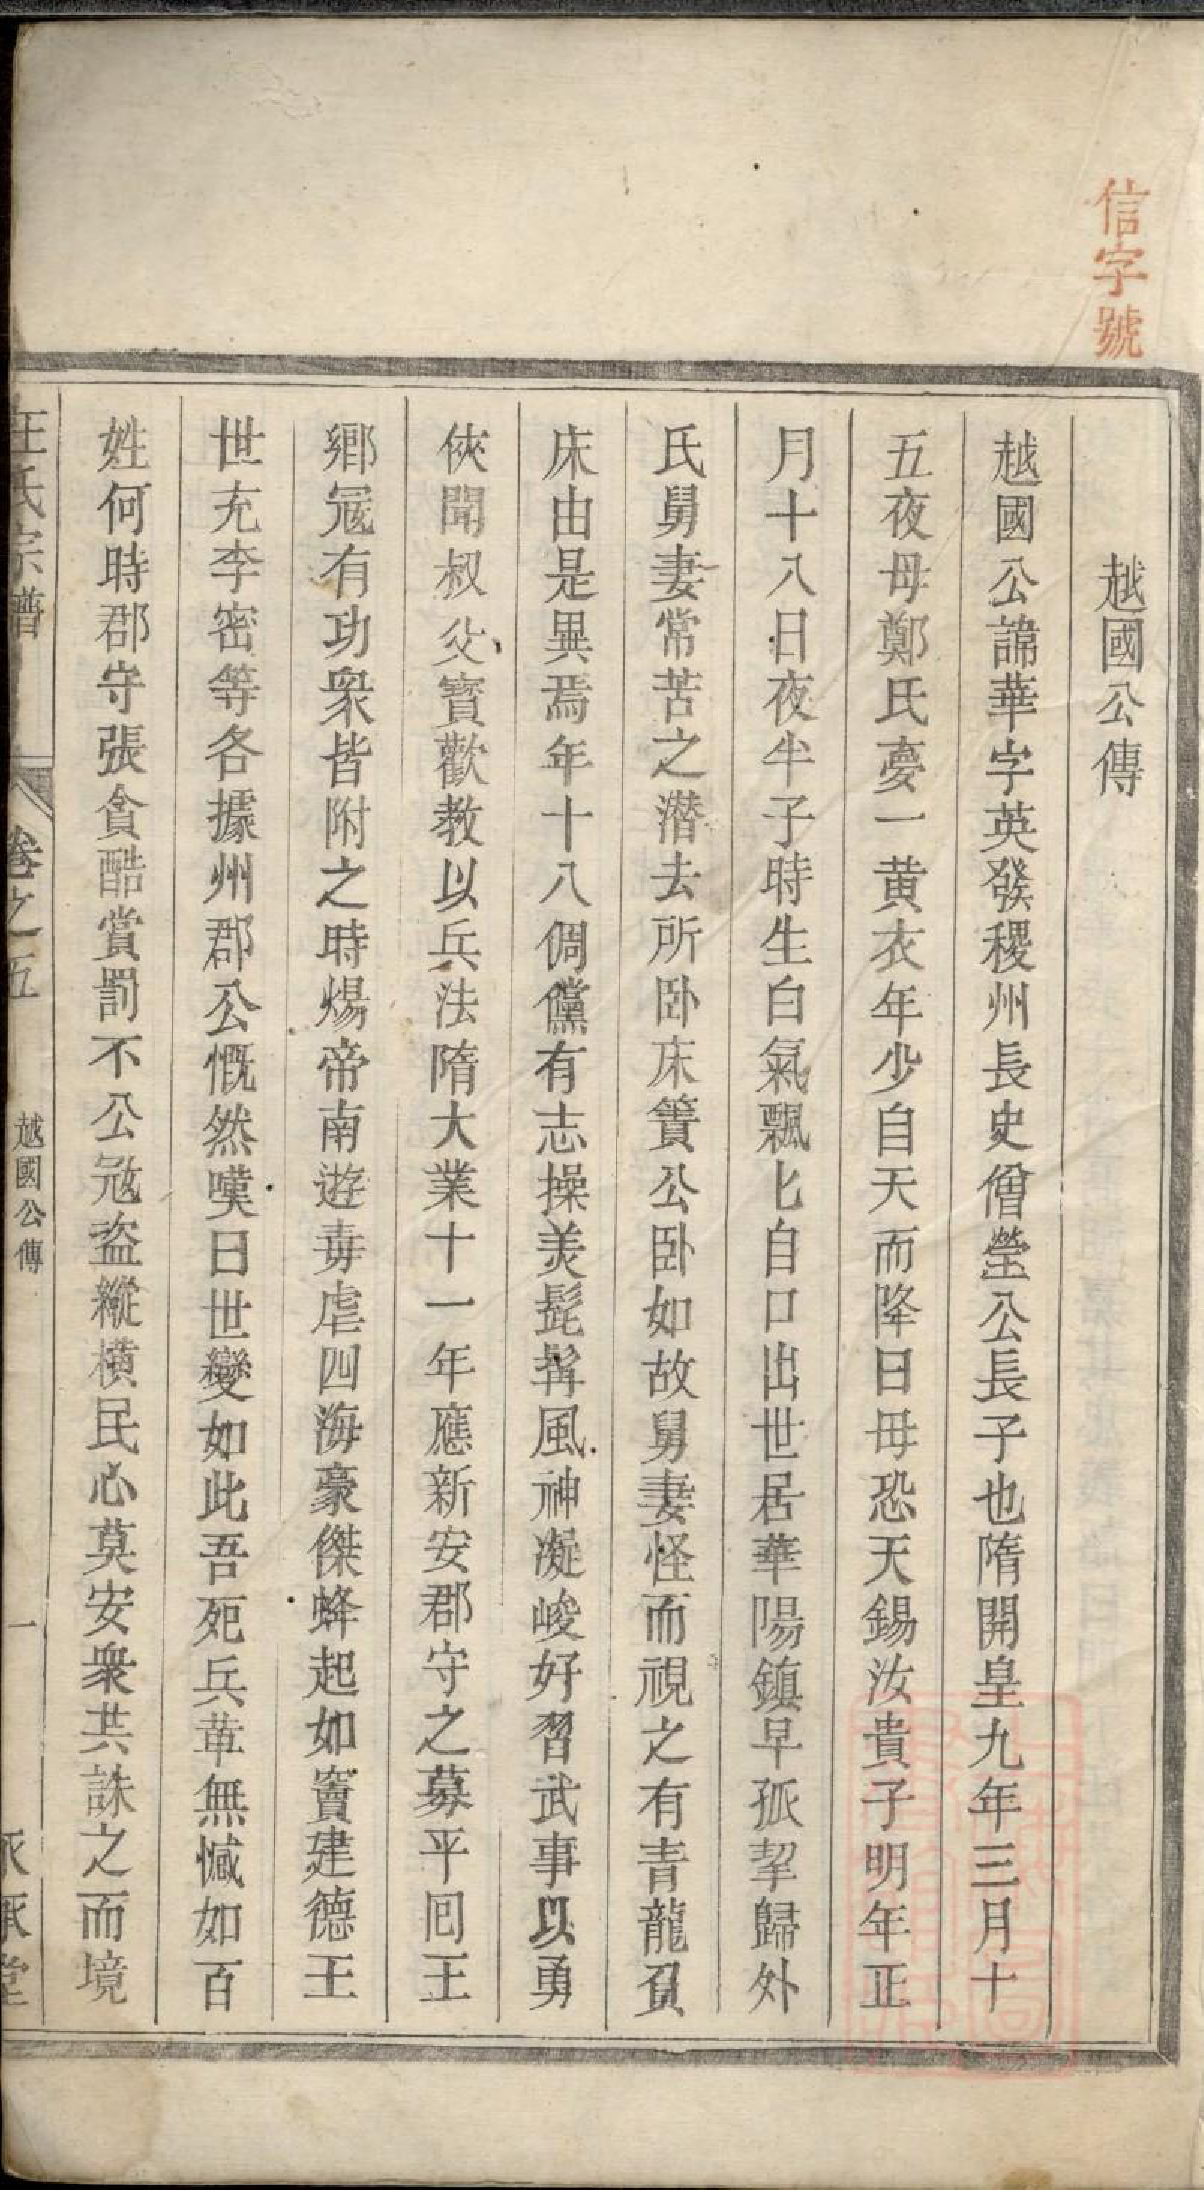 信字號
越國公傳
越國公諱華字英發稷州長史僧瑩公長子也隋開皇九年三月十
五夜母鄭氏夢一黄衣年少自天而降曰母恐天錫汝貴子明年正
月十八日夜半子時生白氣飄匕自口出世居華陽鎮早孤挈歸外
氏舅妻常苦之潜去所卧床簀公卧如故舅妻怪而視之有青龍負
床由是異焉年十八倜儻有志操美髭髯風神凝峻好習武事以勇
俠聞叔父寳歡教以兵法隋大業十一年應新安郡守之募平囘玉
鄉冦有功衆皆附之時煬帝南遊毒虐四海豪傑蜂起如竇建德王
世充李密等各據州郡公慨然嘆曰世變如此吾死兵革無憾如百
姓何時郡守張貪酷賞罰不公冦盗縱橫民心莫安衆共誅之而境
汪氏宗譜
卷之五
越國公傳
一
承堂